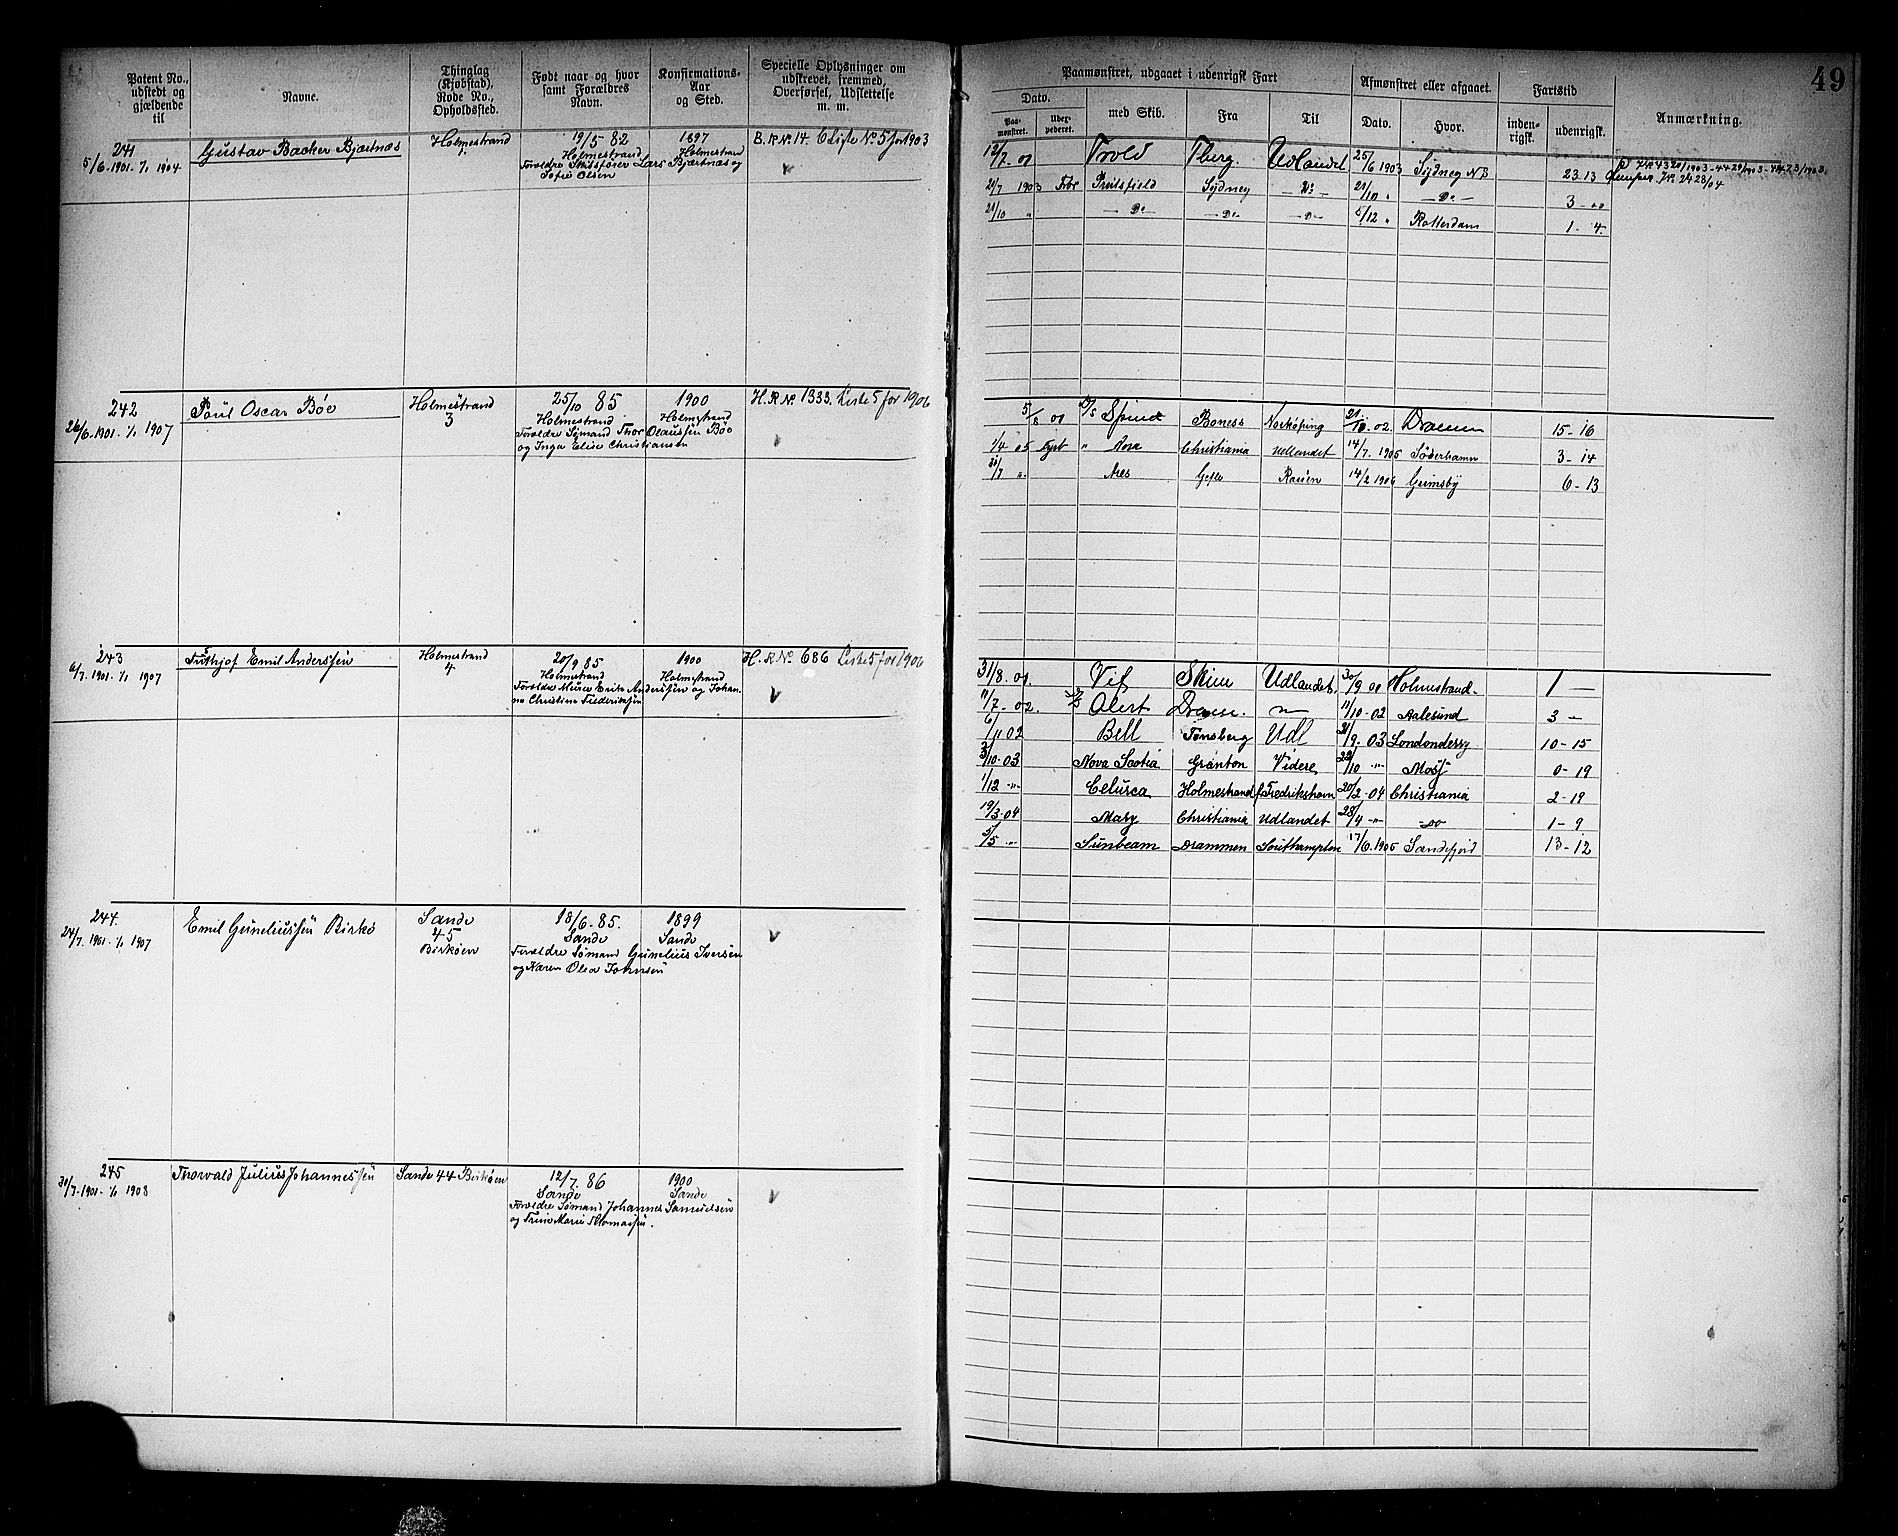 Patent No., udstedt og gjældende til
Navne.
Thinglag (Kjøbstad), Rode No., Opholdssted.
Født naar og hvor samt Forældres Navn.
Konfirmations-Aar og Sted.
Specielle Oplysninger om udskrevet, fremmed, Overførsel, Udslettelse m. m.
241
5/6-1901-1/1 1904
Gustav Backer Bjærtnæs
Holmestrand
1
19/5 82
Holmestrand
Forældre Skibsfører Lars Bjærtnæs og
Sofie Olsen
1897
Holmestrand
B.R.No. 14. Cliste No. 5 for 1903
242
26/6-1901-1/1 1907
Paul Oscar Böe
Holmestrand
3
25/10 85
Holmestrand
Forældre Sømand Thor Olaussen Böe
og Inga Elise Christiansen
1900
Holmestrand
H.R.No. 1333. Liste 5 for 1906
243
6/7. 1901. 1/1 1907
Frithjof Emil Anderssen
Holmestrand
4
20/9 85
Holmestrand
Forældre Murer Erik Anderssen og Johan
ne Christine Frederiksen
1900
Holmestrand
H.R.No. 686 Liste 5 for 1906
244.
24/7. 1901-1/1 1907
Emil Guneliussen Birkö
Sande
45
Birköen
18/6-85.
Sande
Forældre Sømand Gunelius Iversen
og Karen Olea Johnsen
1899
Sande
245
30/7-1901-1/1 1908
Thorvald Julius Johannessen
Sande 44 Birköen
12/7. 86
Sande
Forældre Sømand Johannes Samuelsen
og Trine Marie Thomassen.
1900
Sande
49
Paamønstret, udgaaet i udenrigsk Fart
Afmønstret eller afgaaet.
Fartstid
Anmærkning.
Dato.
Paa-mønstret.
med Skib.
Fra
Til
Dato.
Hvor.
inden-rigsk.
udenrigsk.
12/7-01 Trold Tberg. Udlandet 25/6 1903 Sydney 23 13
21/7 1903 Sydney - Do - 21/10 " - Do - 3 -
21/10 " - Do - - Do - - Do - 5/12 " Rotterdam 1 - 4.
5/8 01 D/S Spind Boness Norköping 21/10-02. Drammen 15-16
1/4 05 Fyrb " Christiania Udlandet 14/7. 1905 Söderhamn 3-14
" Gefle Rouen 14/2 1906 Grimsby 6-13
31/8. 01 Vif Skien Udlandet. 30/9 01 Holmestrand. 1 -
11/7-02. Alert 11/10-02 Aalesund 3 -
6/11 02 Bell Tönsberg Udl 21/9-03 Londonderry 10-15
3/10-03 Nova Scotia Granton Videre 22/10 -"- Moss 0-19
1/12 -"- Celurca Holmestrand Fredrikshavn 20/2-04 Christiania 2-19
19/3-04 Mary Christiania Udlandet 28/4 -"- -do 1-9
5/5 -"- Sunbeam Drammen Southampton 17/6 1905 Sandefjord 13-12